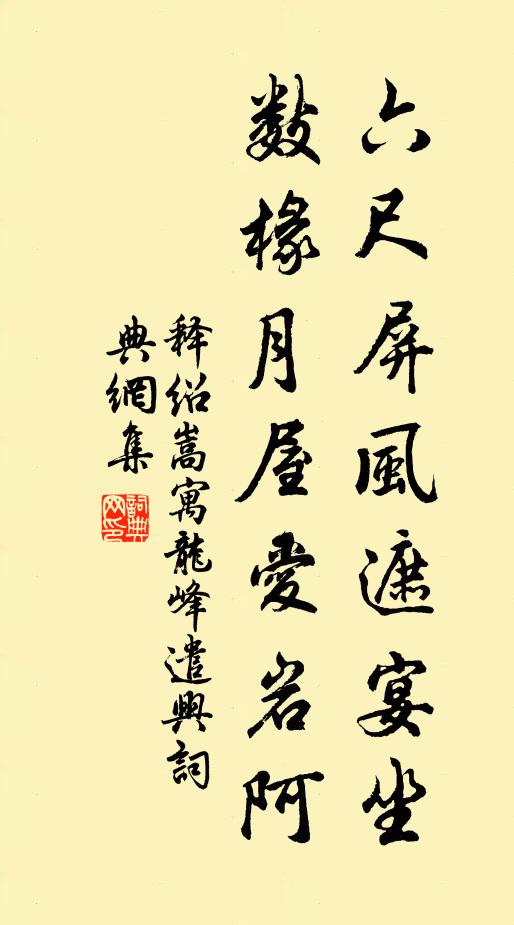 六尺屏風遮宴坐
數椽月屋愛岩阿
釋紹嵩寓龍峰遣興詞
典網集
詞典網印